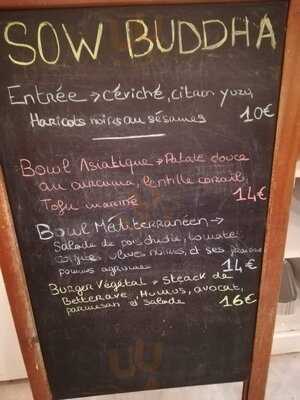 SOW BUDDHA
Entrée → Céviché, citron yuzu,
Haricots noirs au sésames 10€
Bowl Asiatique → Patate douce
au curcuma, lentille corail,
Tofu mariné 14€
Bowl Méditerranéen →
Salade de pois chiche, tomates
olives noires, et ses
pommes agrumes 14€
Burger Végétal → steack de
Betterave, Humus, avocat,
parmesan et salade 16€